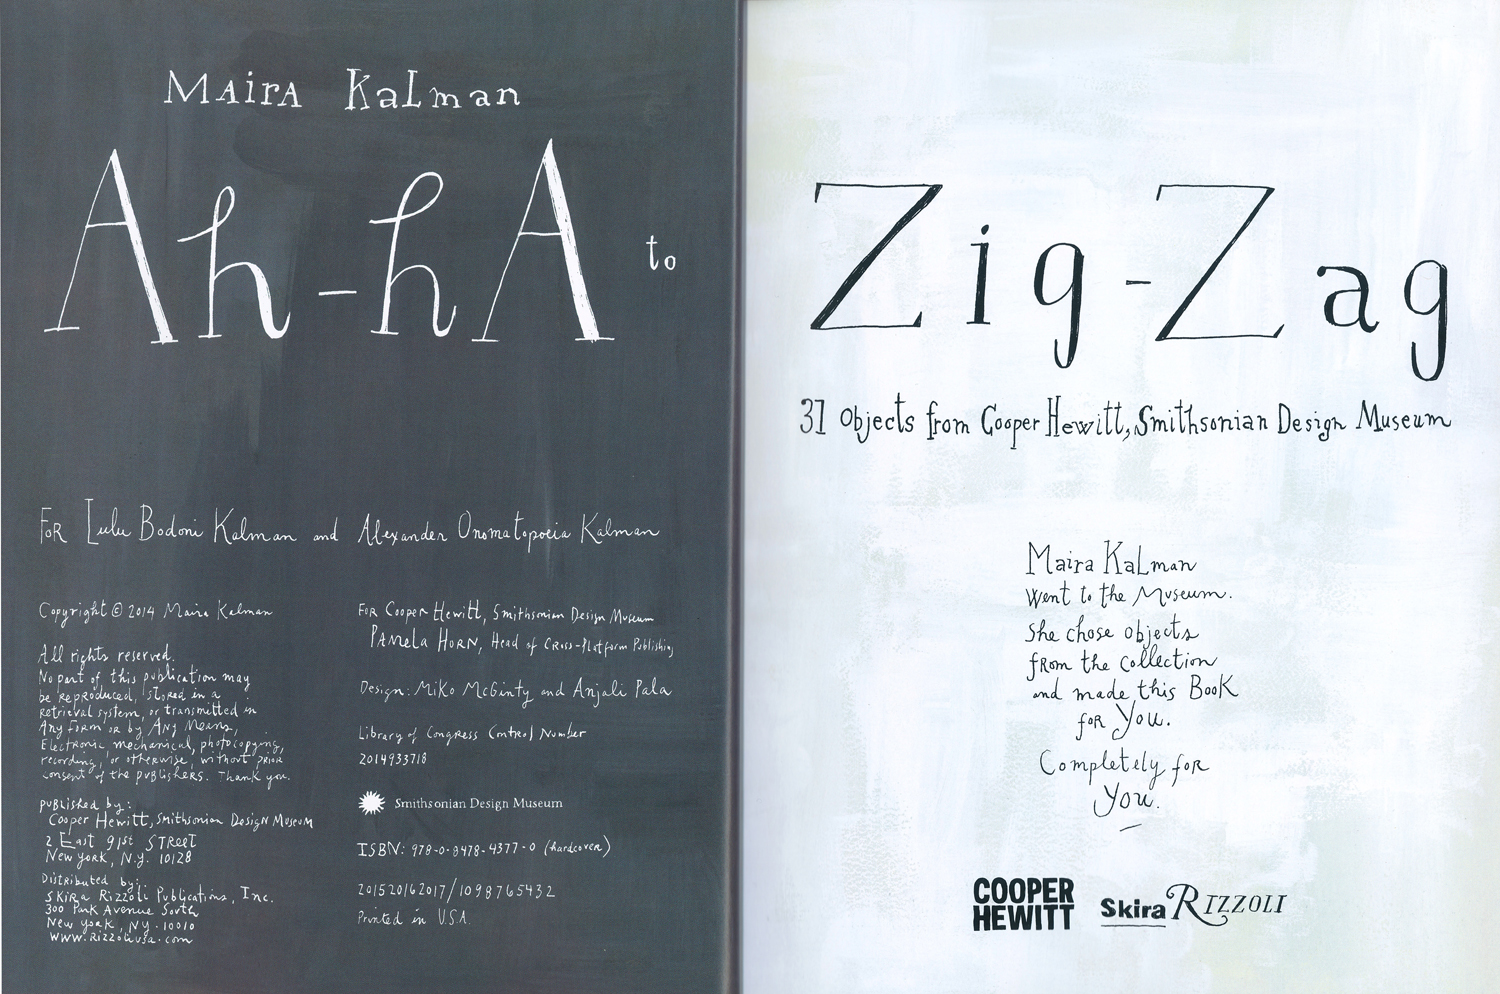 Maira Kalman
Ah-hA to
For Lulu Bodoni Kalman and Alexander Onomatopoeia Kalman
Copyright © 2014 Maira Kalman
All rights reserved.
No part of this publication may
be reproduced, stored in a
retrieval system, or transmitted in
Any Form or by Any Means,
Electronic, mechanical, photocopying,
recording, or otherwise, without prior
consent of the publishers. Thank you.
Published by:
Cooper Hewitt, Smithsonian Design Museum
2 East 91st Street
New York, N.Y. 10128
Distributed by:
Skira Rizzoli Publications, Inc.
300 Park Avenue South
New York, NY. 10010
www.Rizzoliusa.com
For Cooper Hewitt, Smithsonian Design Museum
Pamela Horn, Head of Cross-Platform Publishing
Design: Miko McGinty and Anjali Pala
Library of Congress Control Number
2014933718
Smithsonian Design Museum
ISBN: 978-0-8478-4377-0 (hardcover)
2015 2016 2017 / 10 9 8 7 6 5 4 3 2
Printed in U.S.A.
Zig-Zag
31 Objects from Cooper Hewitt, Smithsonian Design Museum
Maira Kalman
Went to the Museum.
She chose objects
from the collection
and made this Book
for You.
Completely for
You.
COOPER
HEWITT
Skira Rizzoli